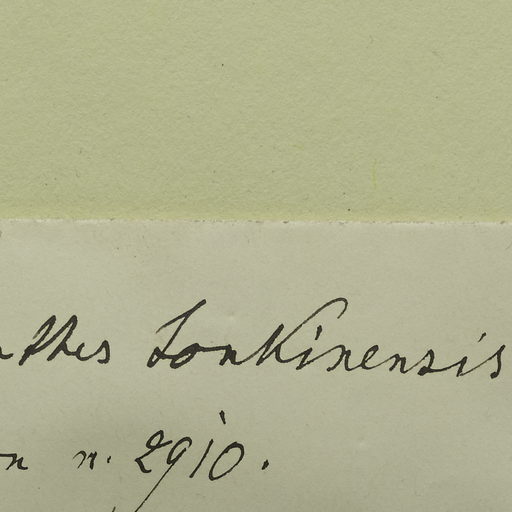 nthes Tonkinensis
on n. 2910.